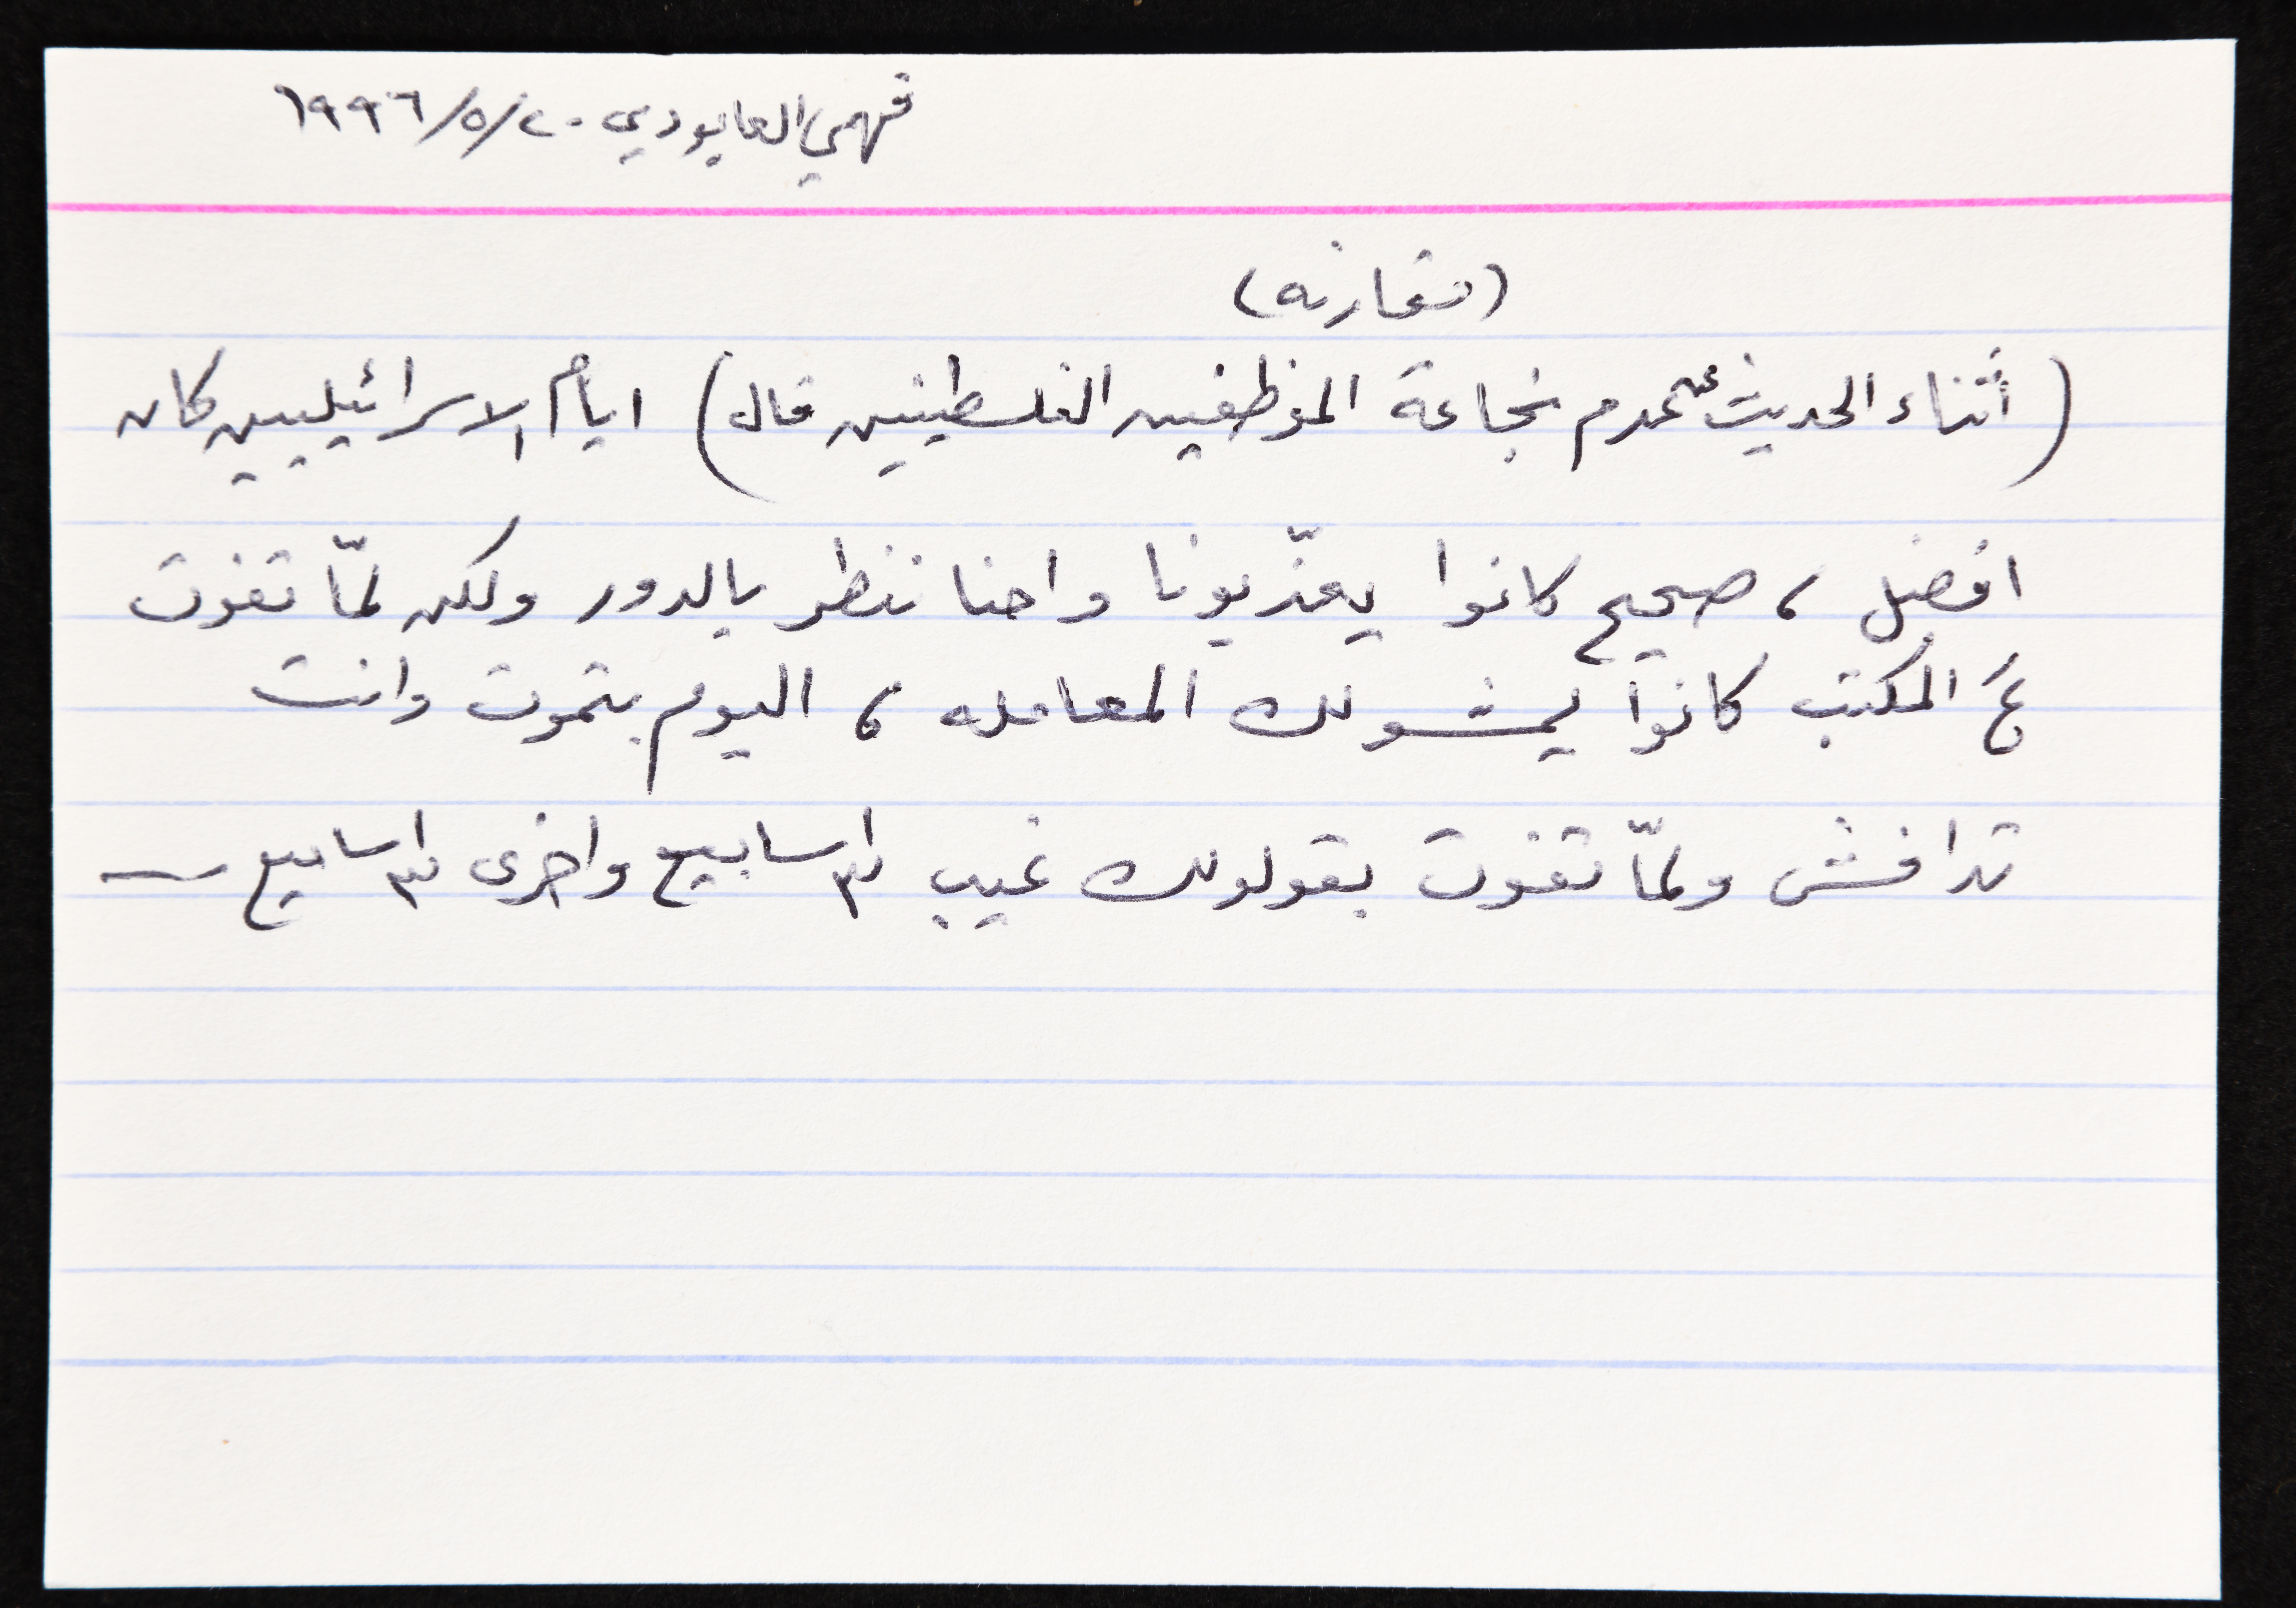 فهمي العابودي ٢٠/٥/١٩٩٦
(مقارنه)
(أثناء الحديث عن عدم نجاعة الموظفين الفلسطينيين قال) ايام الاسرائيليين كان
افضل، صحيح كانوا يعذّبونا واحنا ننطر بالدور ولكن لمّا تفوت
عَ المكتب كانوا يمشولك المعامله، اليوم بتموت وانت
تدافش ولمّا تفوت بقولولك غيب ٣ اسابيع واخرى ٣ اسابيع —